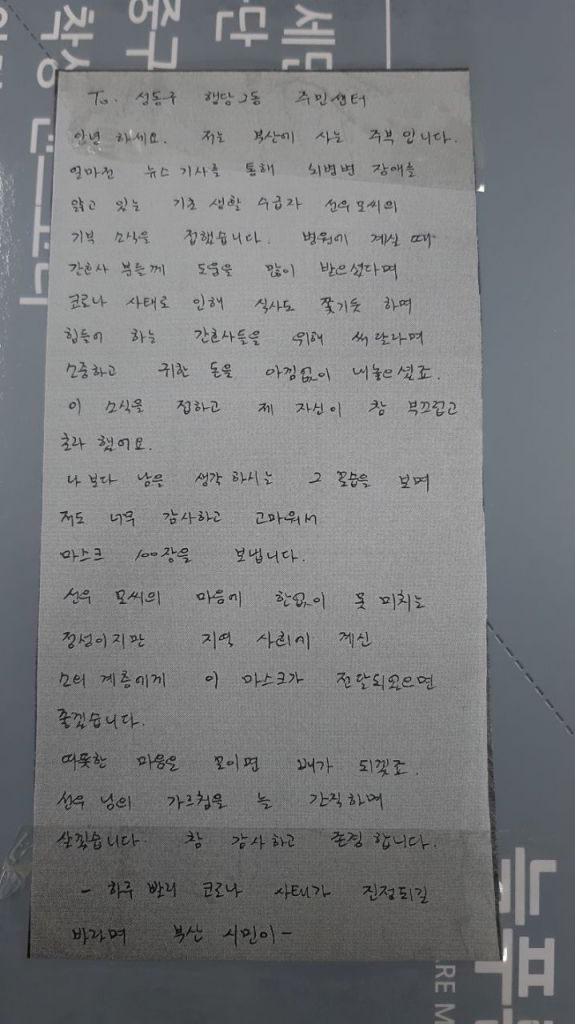 To. 성동구 행당2동 주민센터
안녕 하세요. 저는 부산에 사는 주부 입니다.
얼마전 뉴스 기사를 통해 뇌병변 장애를
앓고 있는 기초 생활 수급자 선우 모씨의
기부 소식을 접했습니다. 병원에 계실 때
간호사 분들께 도움을 많이 받으셨다며
코로나 사태로 인해 식사도 쫓기듯 하며
힘들어 하는 간호사들을 위해 써 달라며
소중하고 귀한 돈을 아낌없이 내놓으셨죠.
이 소식을 접하고 제 자신이 참 부끄럽고
초라 했어요.
나 보다 남을 생각 하시는 그 모습을 보며
저도 너무 감사하고 고마워서
마스크 100장을 보냅니다.
선우 모씨의 마음에 한없이 못 미치는
정성이지만 지역 사회에 계신
소외 계층에게 이 마스크가 전달되었으면
좋겠습니다.
따뜻한 마음은 모이면 배가 되겠죠.
선우 님의 가르침을 늘 간직하며
살겠습니다. 참 감사하고 존경 합니다.
- 하루 빨리 코로나 사태가 진정되길
바라며 부산 시민이 -